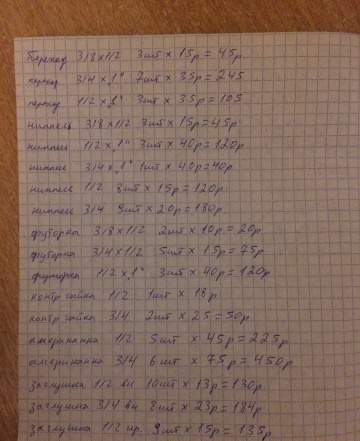 Переход 3/8 x 1/2 3шт x 15р = 45р
переход 3/4 x 1" 7шт x 35р = 245
переход 1/2 x 1" 3шт x 35р = 105
ниппель 3/8 x 1/2 3шт x 15р = 45р
ниппель 1/2 x 1" 3шт x 40р = 120р
ниппель 3/4 x 1" 1шт x 40р = 40р
ниппель 1/2 8шт x 15р = 120р
ниппель 3/4 9шт x 20р = 180р
футорка 3/8 x 1/2 2шт x 10р = 20р
футорка 3/4 x 1/2 5шт x 15р = 75р
футорка 1/2 x 1" 3шт x 40р = 120р
контргайка 1/2 1шт x 18р
контргайка 3/4 2шт x 25 = 50р
американка 1/2 5шт x 45р = 225р
американка 3/4 6шт x 75р = 450р
заглушка 1/2 вн 10шт x 13р = 130р
заглушка 3/4 вн 8шт x 23р = 184р
заглушка 1/2 нр. 9шт x 15р = 135р